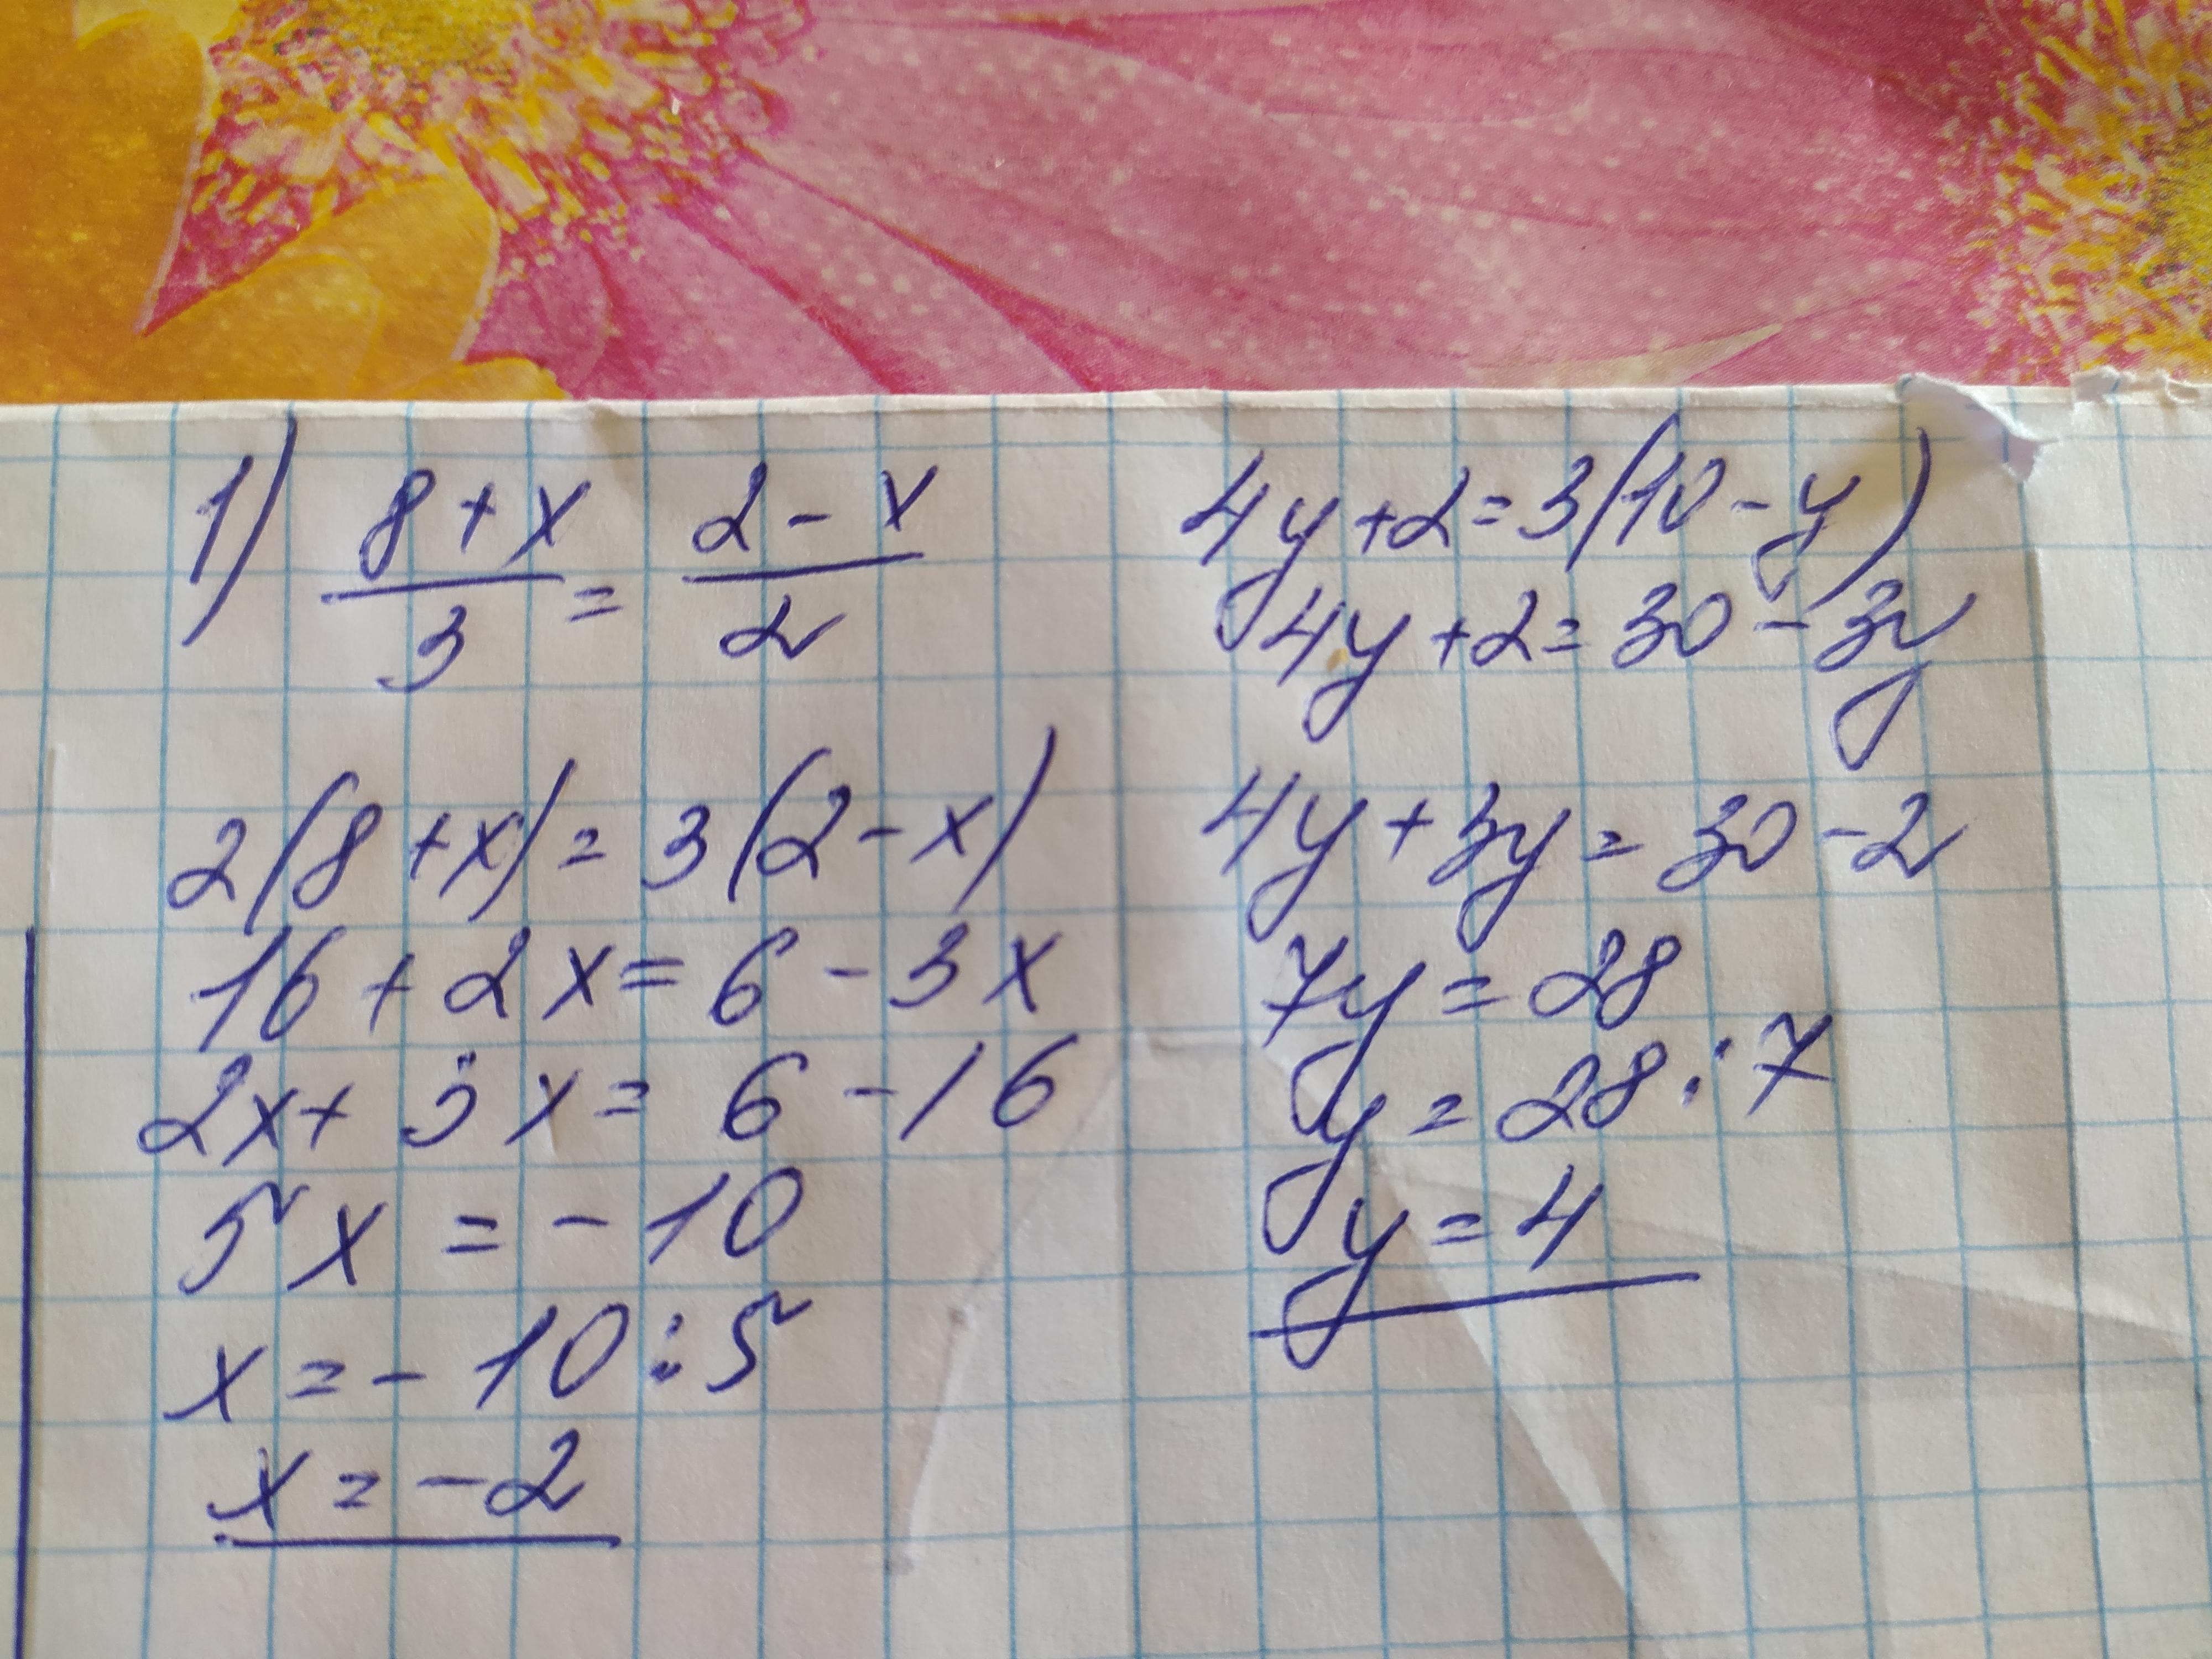 1) (8 + x)/3 = (2 - x)/2
2(8 + x) = 3(2 - x)
16 + 2x = 6 - 3x
2x + 3x = 6 - 16
5x = - 10
x = - 10 : 5
x = - 2
4y + 2 = 3(10 - y)
4y + 2 = 30 - 3y
4y + 3y = 30 - 2
7y = 28
y = 28 : 7
y = 4